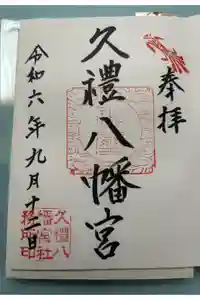 奉拝
久禮八幡宮
令和六年九月十三日
久禮八
幡宮社
務所印